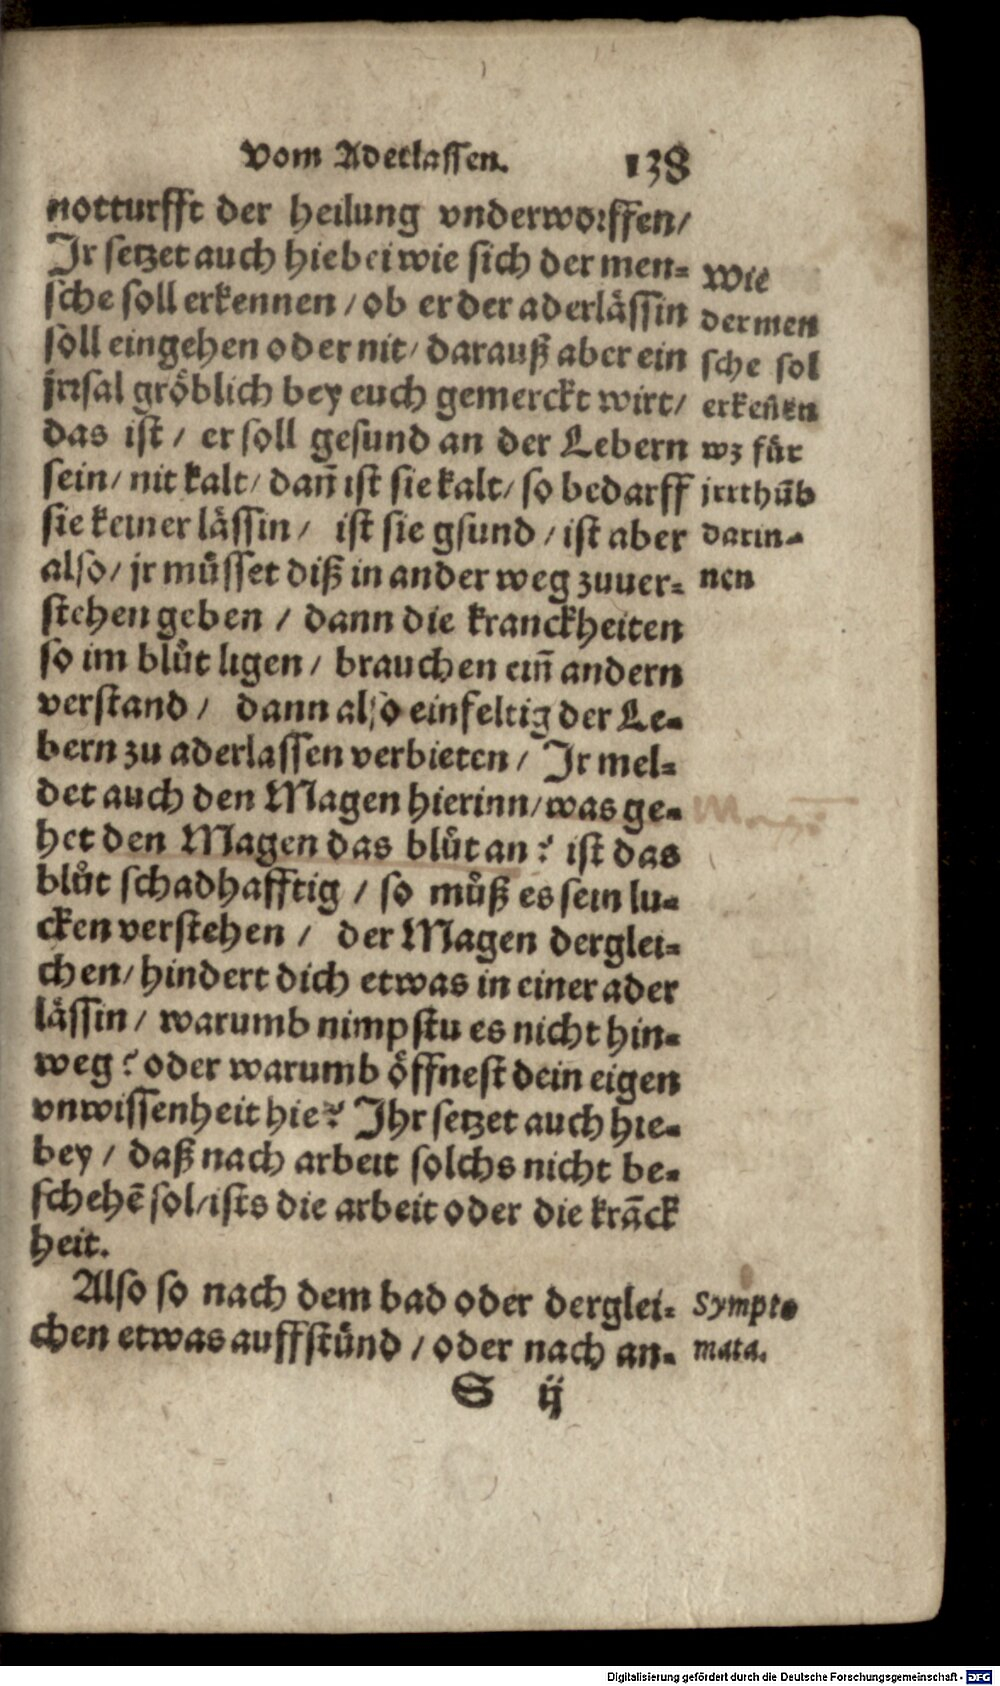 Vom Aderlassen. 138
notturfft der heilung vnderworffen/
Jr setzet auch hiebei wie sich der men-
sche soll erkennen / ob er der aderlässin
soll eingehen oder nit/ darauß aber ein
jrrsal gröblich bey euch gemerckt wirt/
das ist / er soll gesund an der Lebern
sein/ nit kalt/ dañ ist sie kalt/ so bedarff
sie keiner lässin / ist sie gsund / ist aber
also/ jr müsset diß in ander weg zuuer-
stehen geben / dann die kranckheiten
so im blůt ligen / brauchen eiñ andern
verstand / dann also einfeltig der Le-
bern zu aderlassen verbieten / Jr mel-
det auch den Magen hierinn/ was ge-
het den Magen das blůt an? ist das
blůt schadhafftig / so můß es sein lu-
cken verstehen / der Magen derglei-
chen/ hindert dich etwas in einer ader
lässin / warumb nimpstu es nicht hin-
weg? oder warumb öffnest dein eigen
vnwissenheit hie? Jhr setzet auch hie-
bey / daß nach arbeit solchs nicht be-
schehē sol/ ists die arbeit oder die krāck
heit.
Also so nach dem bad oder derglei-
chen etwas auffstünd / oder nach an-
S ij
Wie
der men
sche sol
erkeñen
wz für
jrrthūb
darin-
nen
Sympto
mata.
Digitalisierung gefördert durch die Deutsche Forschungsgemeinschaft - DFG